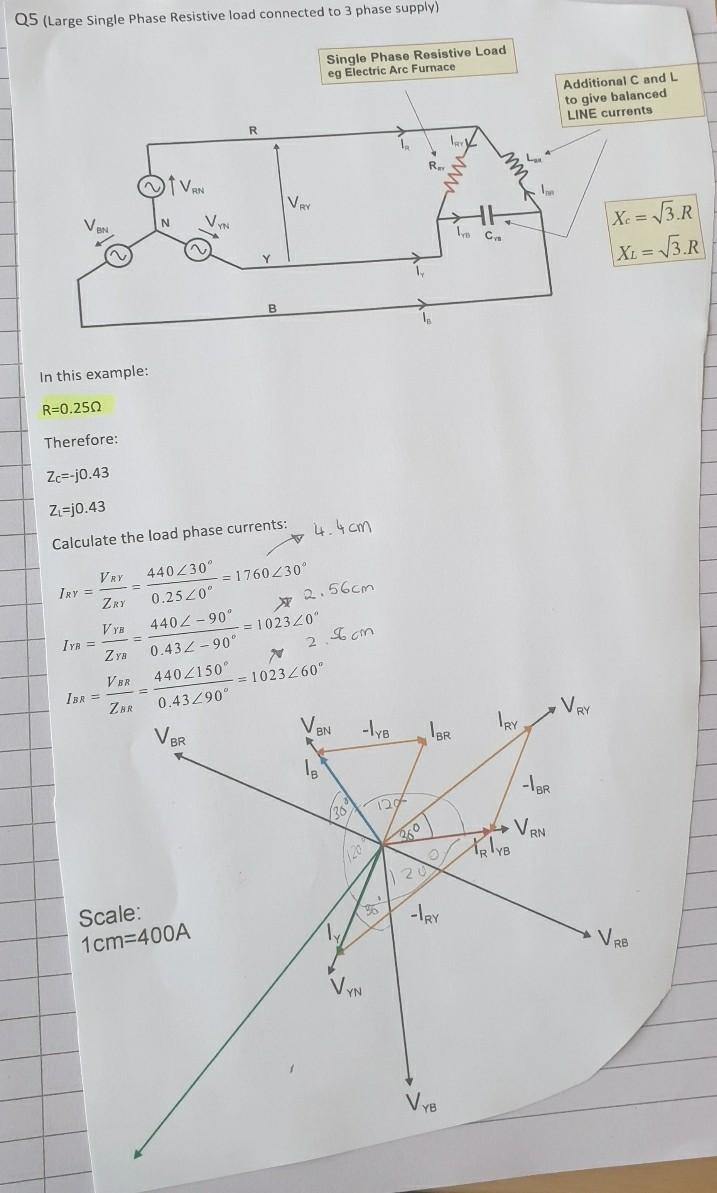 Q5 (Large Single Phase Resistive load connected to 3 phase supply)
Single Phase Resistive Load
eg Electric Arc Furnace
Additional C and L
to give balanced
LINE currents
R
I_R
I_RY
R_RY
L_BR
V_RN
V_RY
I_BR
V_BN
N
V_YN
I_YB
C_YB
X_C = √3.R
X_L = √3.R
Y
I_Y
B
I_B
In this example:
R=0.25Ω
Therefore:
Z_C=-j0.43
Z_L=j0.43
Calculate the load phase currents:
4.4cm
I_RY = V_RY / Z_RY = 440∠30° / 0.25∠0° = 1760∠30°
2.56cm
I_YB = V_YB / Z_YB = 440∠-90° / 0.43∠-90° = 1023∠0°
2.56cm
I_BR = V_BR / Z_BR = 440∠150° / 0.43∠90° = 1023∠60°
V_BR
V_BN
-I_YB
I_BR
I_RY
V_RY
I_B
-I_BR
30°
120
V_RN
I_R
I_YB
120°
120
Scale:
1cm=400A
-I_RY
I_Y
V_RB
V_YN
V_YB